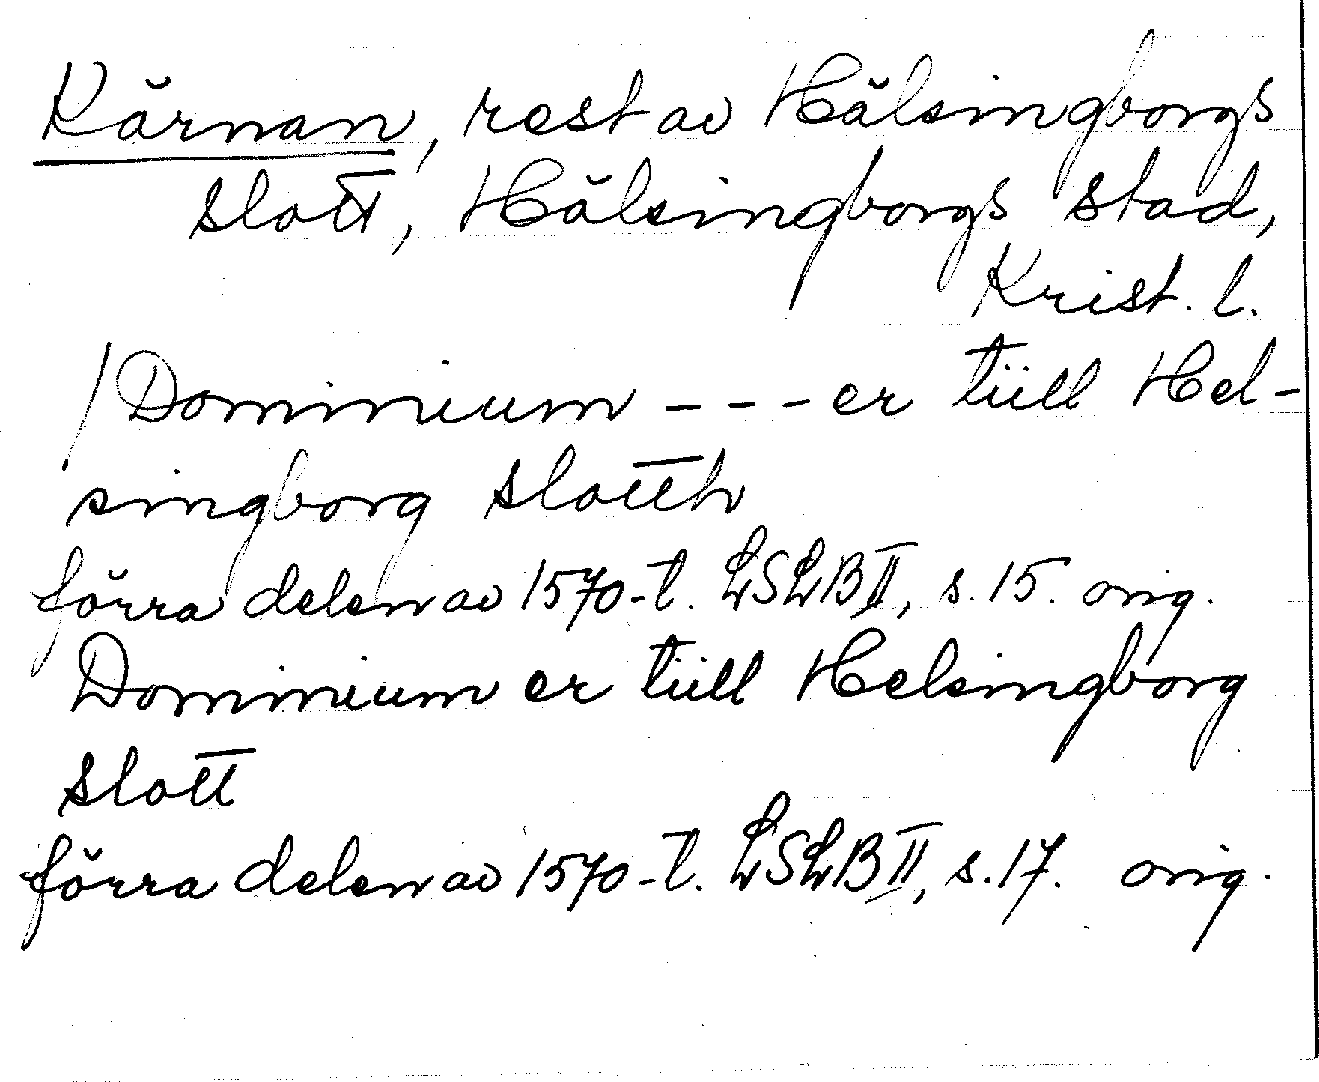 Kärnan, rest av Hälsingborgs
slott, Hälsingborgs stad,
Krist. l.
/Dominium - - - er tiill Hel-
singborg slotth
förra delen av 1570-t. LSLB II, s. 15. orig.
Dominium er tiill Helsingborg
slott
förra delen av 1570-t. LSLB II, s. 17. orig.